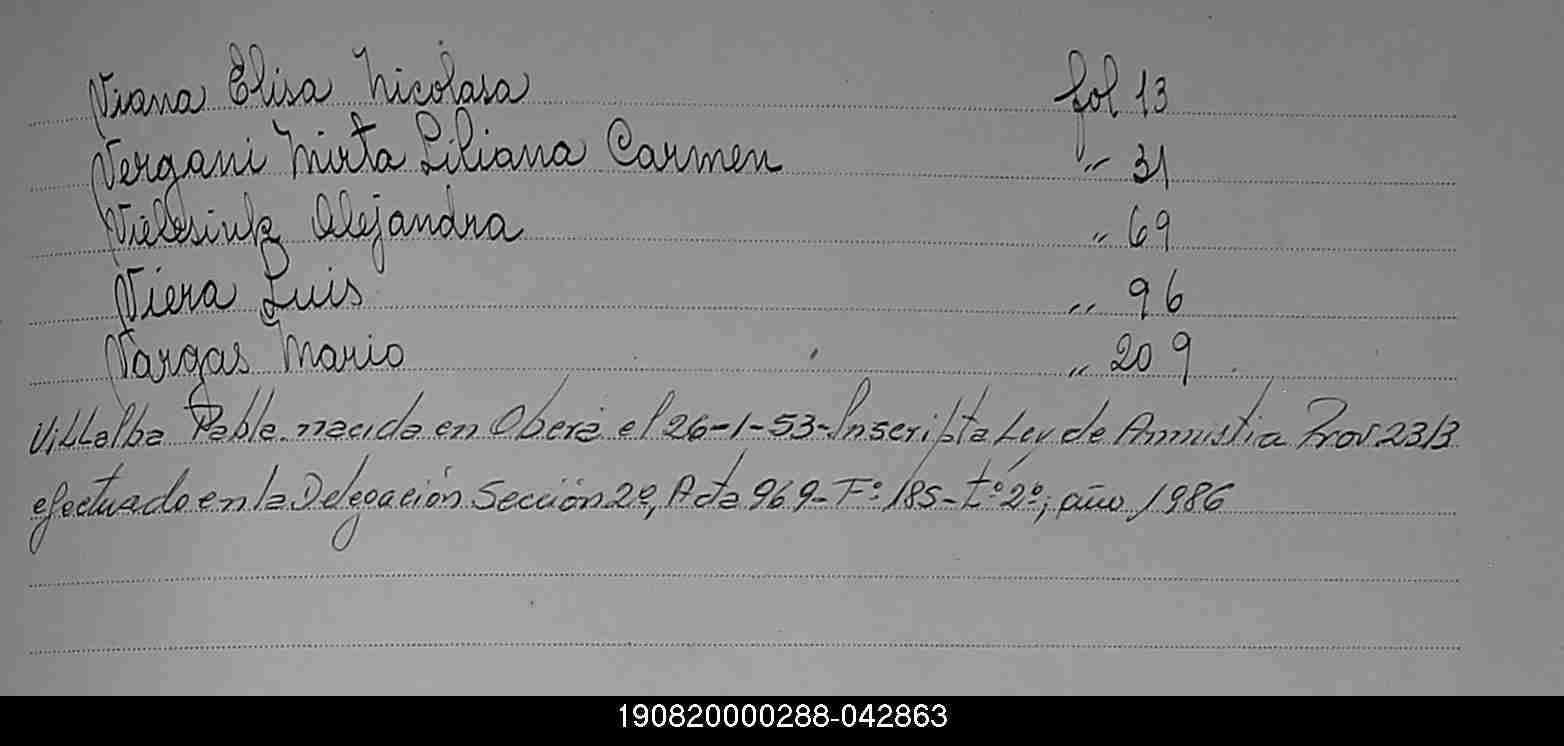 Viana Elisa Nicolasa fol 13
Vergani Mirta Liliana Carmen " 31
Alejandra " 69
Viera Luis " 96
Vargas Mario " 209
Villalba Pabla. nacida en Oberá el 26-1-53- Inscripta Ley de Amnistia Prov 2313
efectuado en la Delegación Sección 2º, Acta 969- Fº 185- tº 2º; año 1986
190820000288-042863